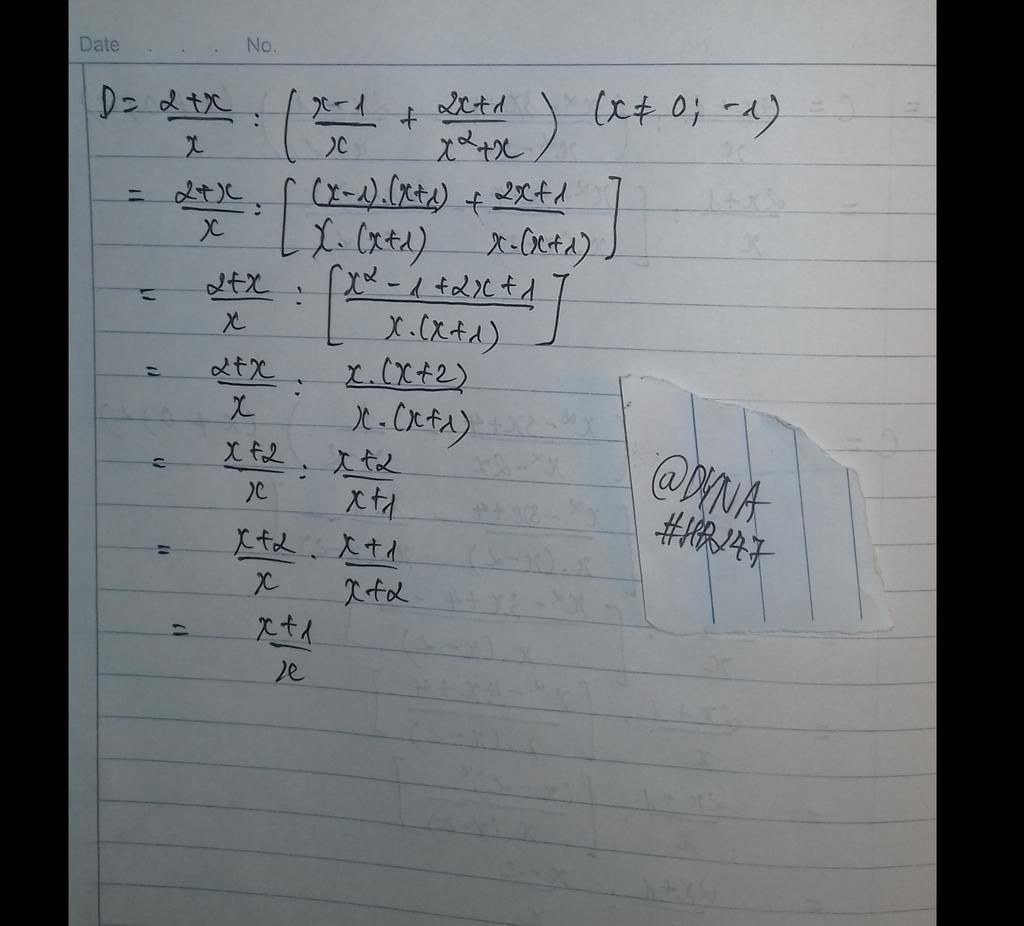 Date . . . No.
D = \frac{2+x}{x} : \left( \frac{x-1}{x} + \frac{2x+1}{x^2+x} \right) (x ≠ 0; -1)
= \frac{2+x}{x} : \left[ \frac{(x-1).(x+1)}{x.(x+1)} + \frac{2x+1}{x.(x+1)} \right]
= \frac{2+x}{x} : \left[ \frac{x^2-1+2x+1}{x.(x+1)} \right]
= \frac{2+x}{x} : \frac{x.(x+2)}{x.(x+1)}
= \frac{x+2}{x} : \frac{x+2}{x+1}
= \frac{x+2}{x} . \frac{x+1}{x+2}
= \frac{x+1}{x}
@DYNA
#HR247